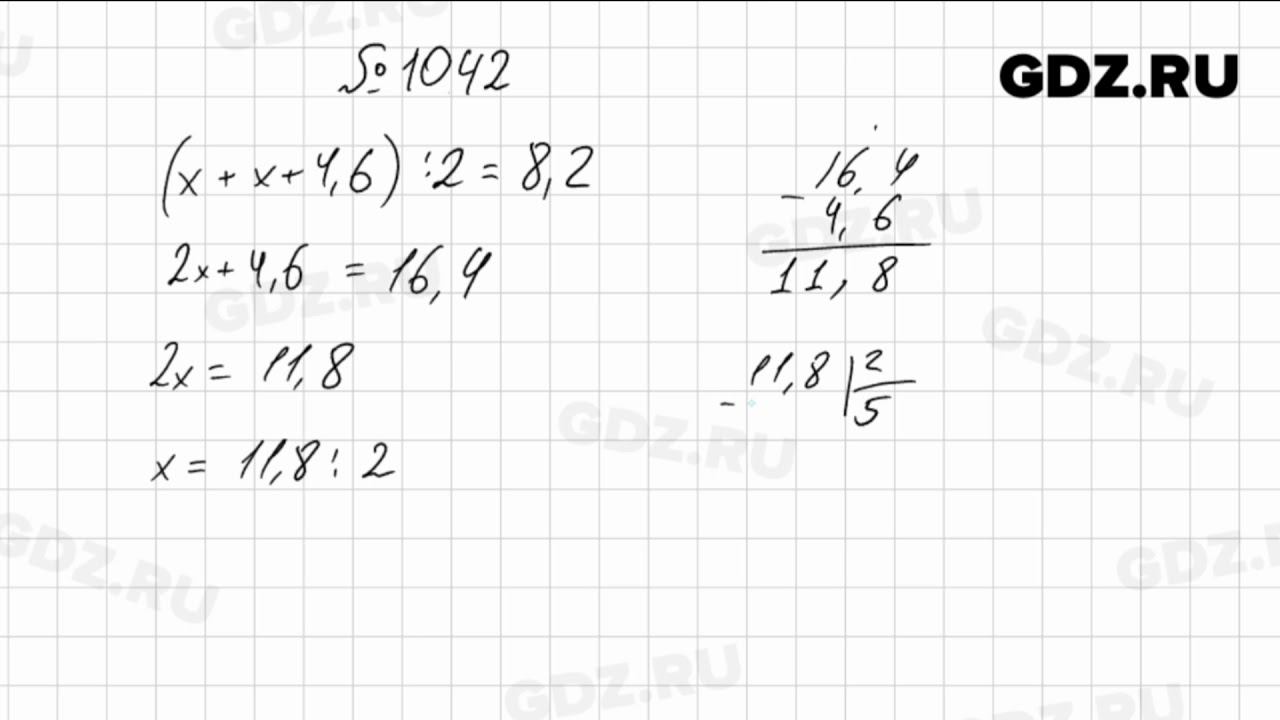 № 1042
GDZ.RU
(x + x + 4,6) : 2 = 8,2
2x + 4,6 = 16,4
2x = 11,8
x = 11,8 : 2
- 16,4
4,6
11,8
- 11,8 | 2
5
GDZ.RU
GDZ.RU
GDZ.RU
GDZ.RU
GDZ.RU
GDZ.RU
GDZ.RU
GDZ.RU